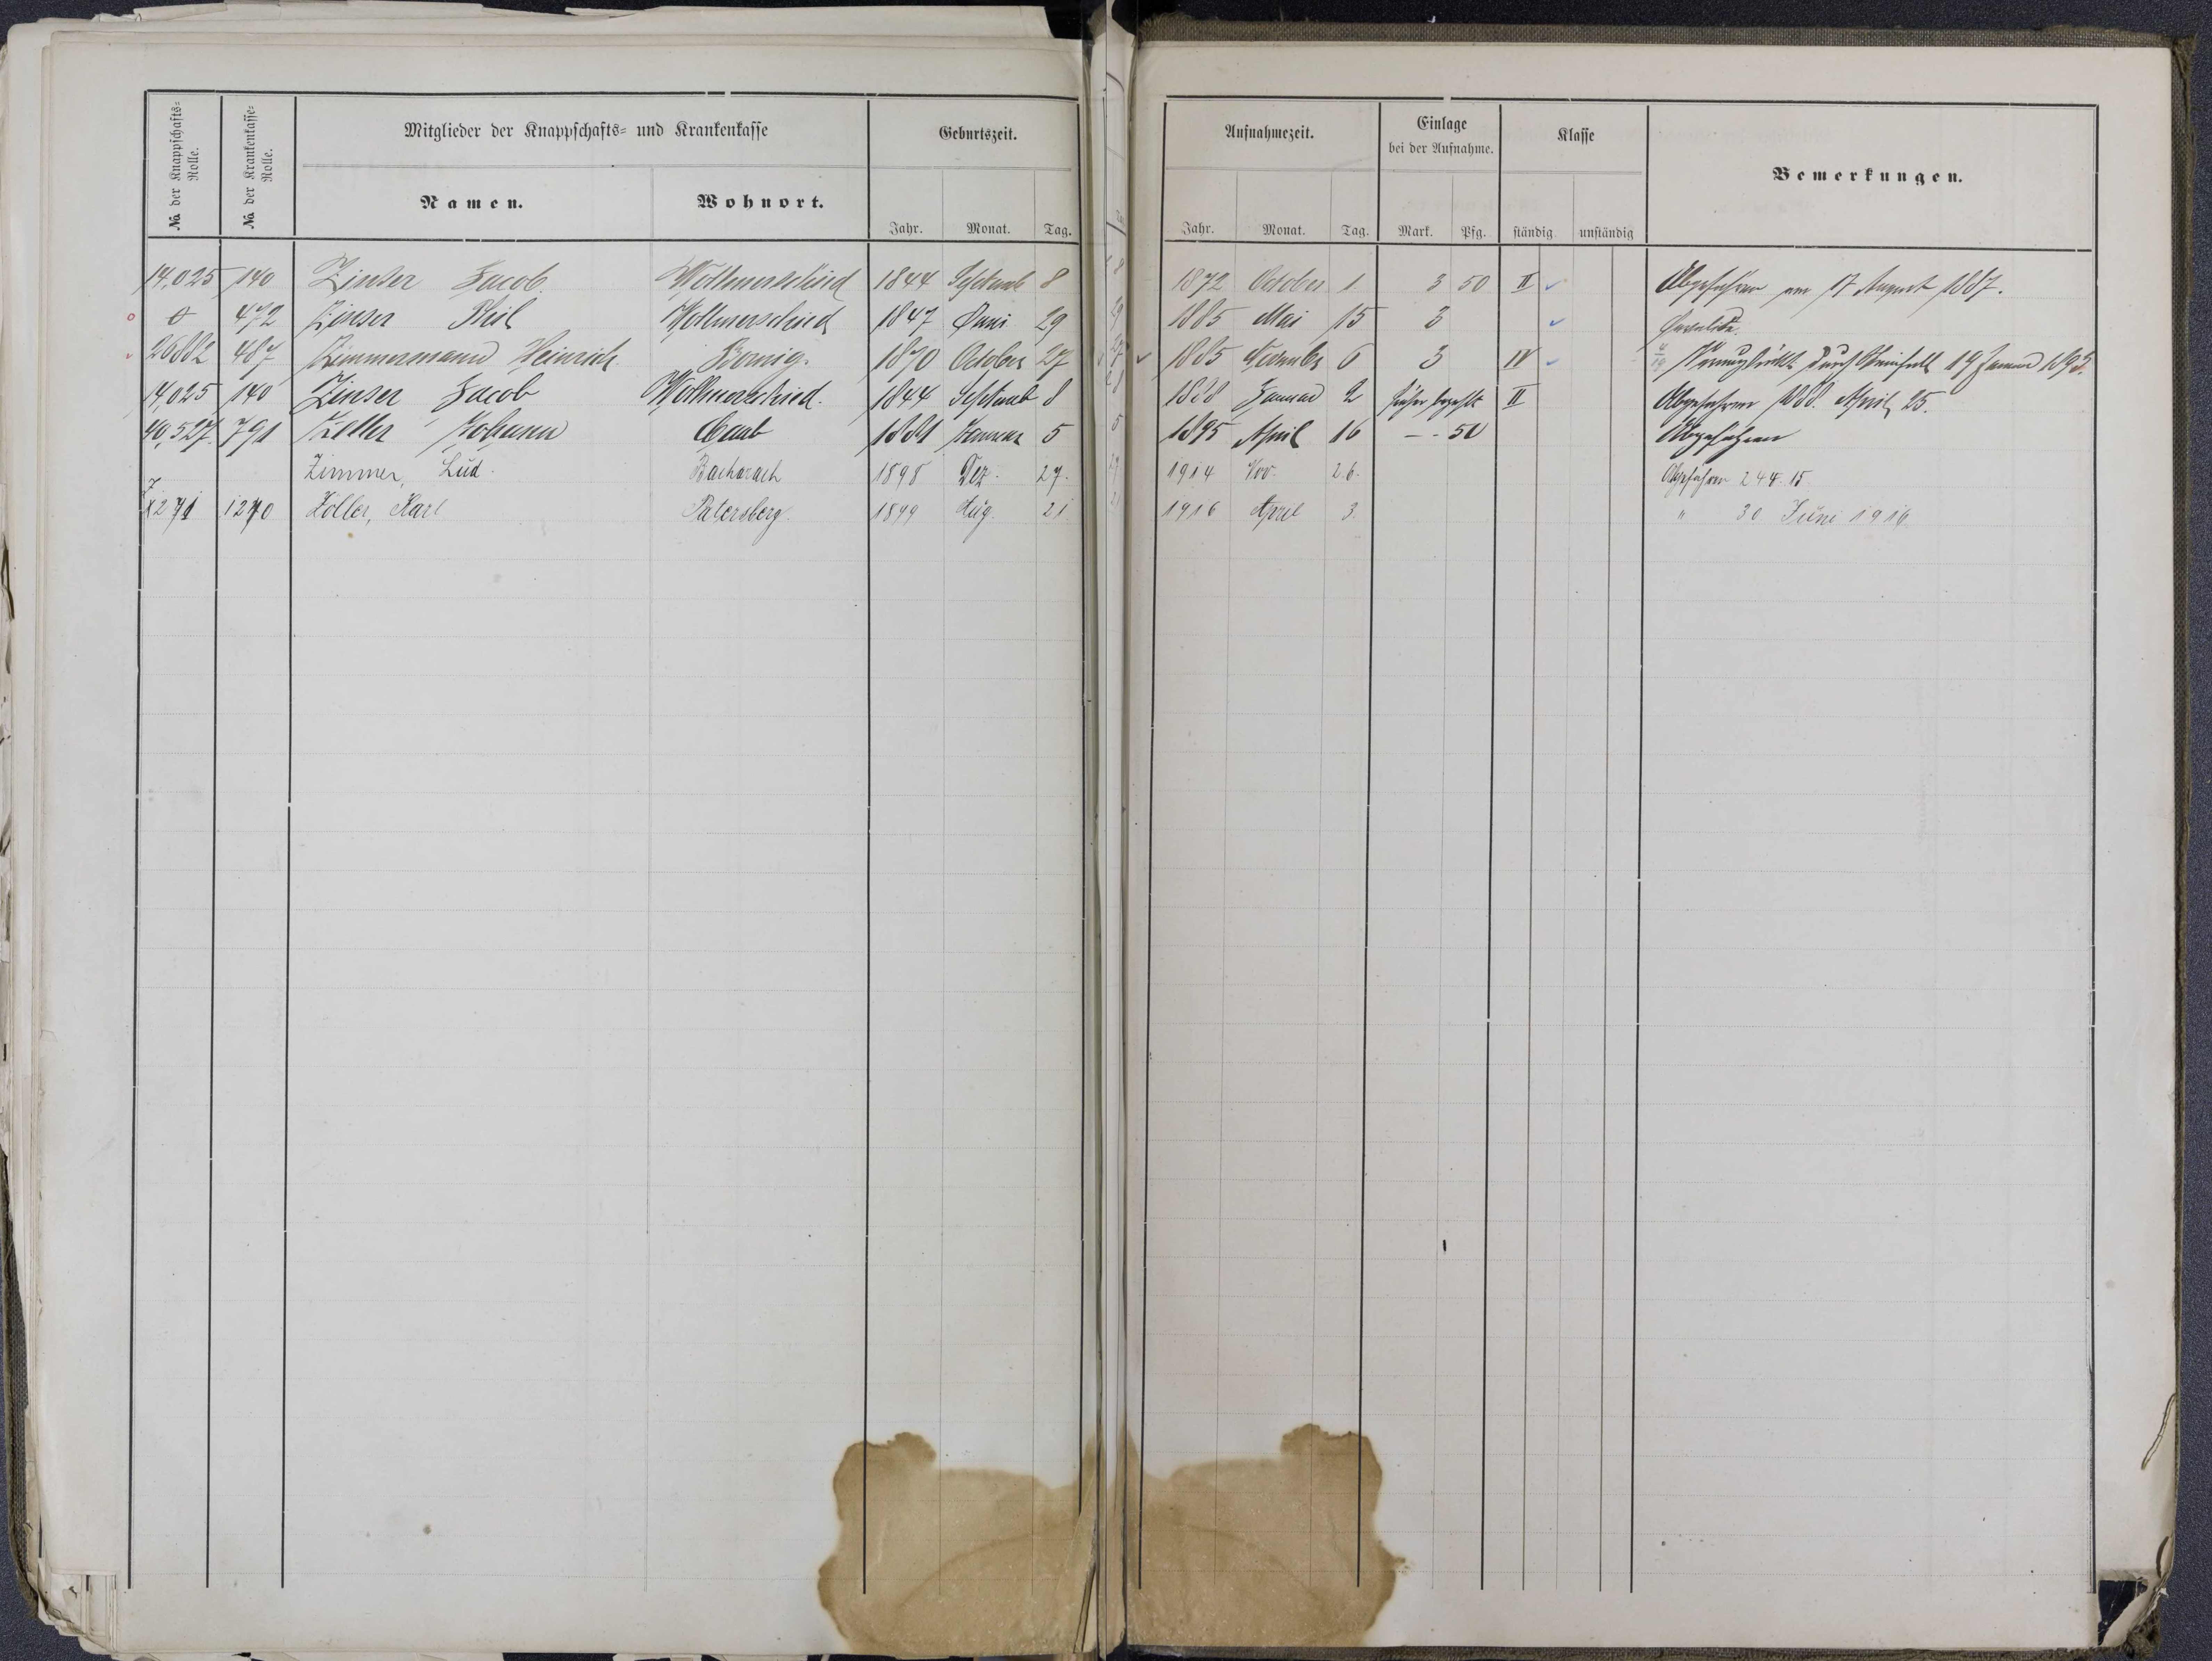 № der Knappschafts-Rolle.
№ der Krankenkasse-Rolle.
Mitglieder der Knappschafts- und Krankenkasse
Namen.
Wohnort.
Geburtszeit.
Jahr. Monat. Tag.
Aufnahmezeit.
Jahr. Monat. Tag.
Einlage bei der Aufnahme.
Mark. Pfg.
Klasse
ständig unständig
Bemerkungen.
14,025 140 Zinser Jacob Wollmerschied 1844 Septemb 8 1872 October 1 3 50 II Abgefahren am 17 August 1887.
0 472 Zinser Phil Wollmerschied 1847 Juni 29 1885 Mai 15 3 Invalide.
26882 487 Zimmermann Heinrich Bornig. 1870 October 27 1885 Novembr 6 3 IV Verunglückt durch Steinfall 19 Januar 1893.
14,025 140 Zinser Jacob Wollmerschied. 1844 Septemb 8 1888 Januar 2 früher bezahlt II Abgefahren 1888. April 25.
40,527. 791 Zeller Johann Caub 1881 Januar 5 1895 April 16 -- 50 Abgefahren
Zimmer, Lud. Bacharach 1898 Dez. 27. 1914 Nov. 26. Abgefahren 24.4.15
1271 1270 Zöller, Karl Patersberg. 1899 Aug. 21. 1916 April 3. " 30 Juni 1916